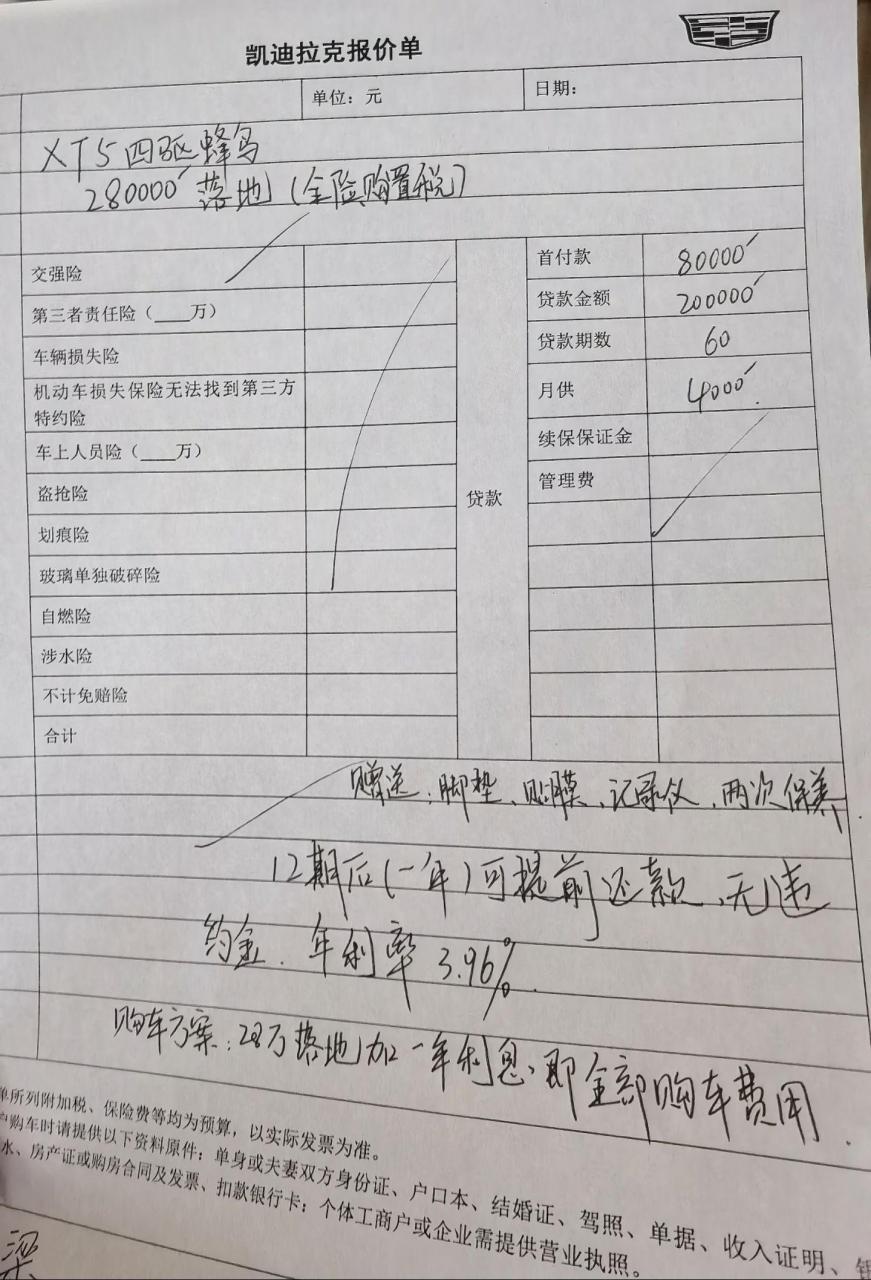 凯迪拉克报价单
单位：元
日期：
XT5四驱蜂鸟
280000 落地（全险购置税）
交强险
第三者责任险（___万）
车辆损失险
机动车损失保险无法找到第三方
特约险
车上人员险（___万）
盗抢险
划痕险
玻璃单独破碎险
自燃险
涉水险
不计免赔险
合计
贷款
首付款 80000
贷款金额 200000
贷款期数 60
月供 4000
续保保证金
管理费
赠送：脚垫、贴膜、记录仪、两次保养
12期后（一年）可提前还款、无违
约金. 年利率 3.96%.
购车方案：28万落地加一年利息，即全部购车费用.
单所列附加税、保险费等均为预算，以实际发票为准。
户购车时请提供以下资料原件：单身或夫妻双方身份证、户口本、结婚证、驾照、单据、收入证明、银
水、房产证或购房合同及发票、扣款银行卡；个体工商户或企业需提供营业执照。
梁